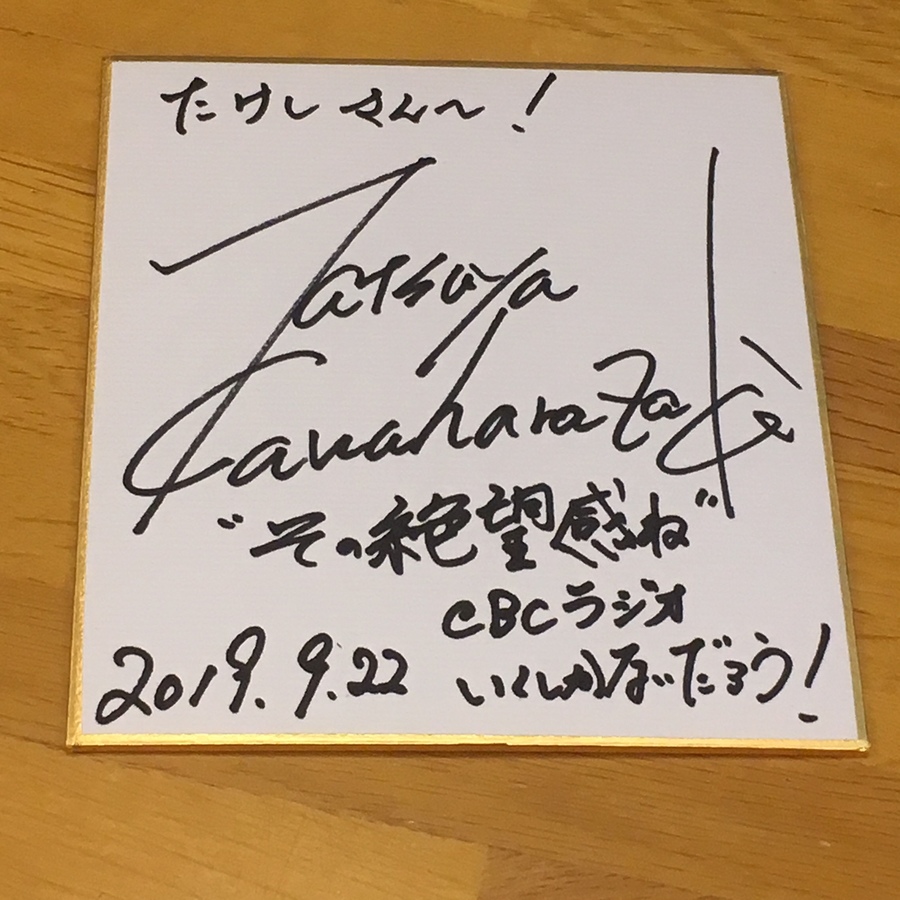 たけしさん〜！
Tatsuya
Kawaharazaki
"その絶望感ね"
CBCラジオ
いくしかないだろう！
2019.9.22